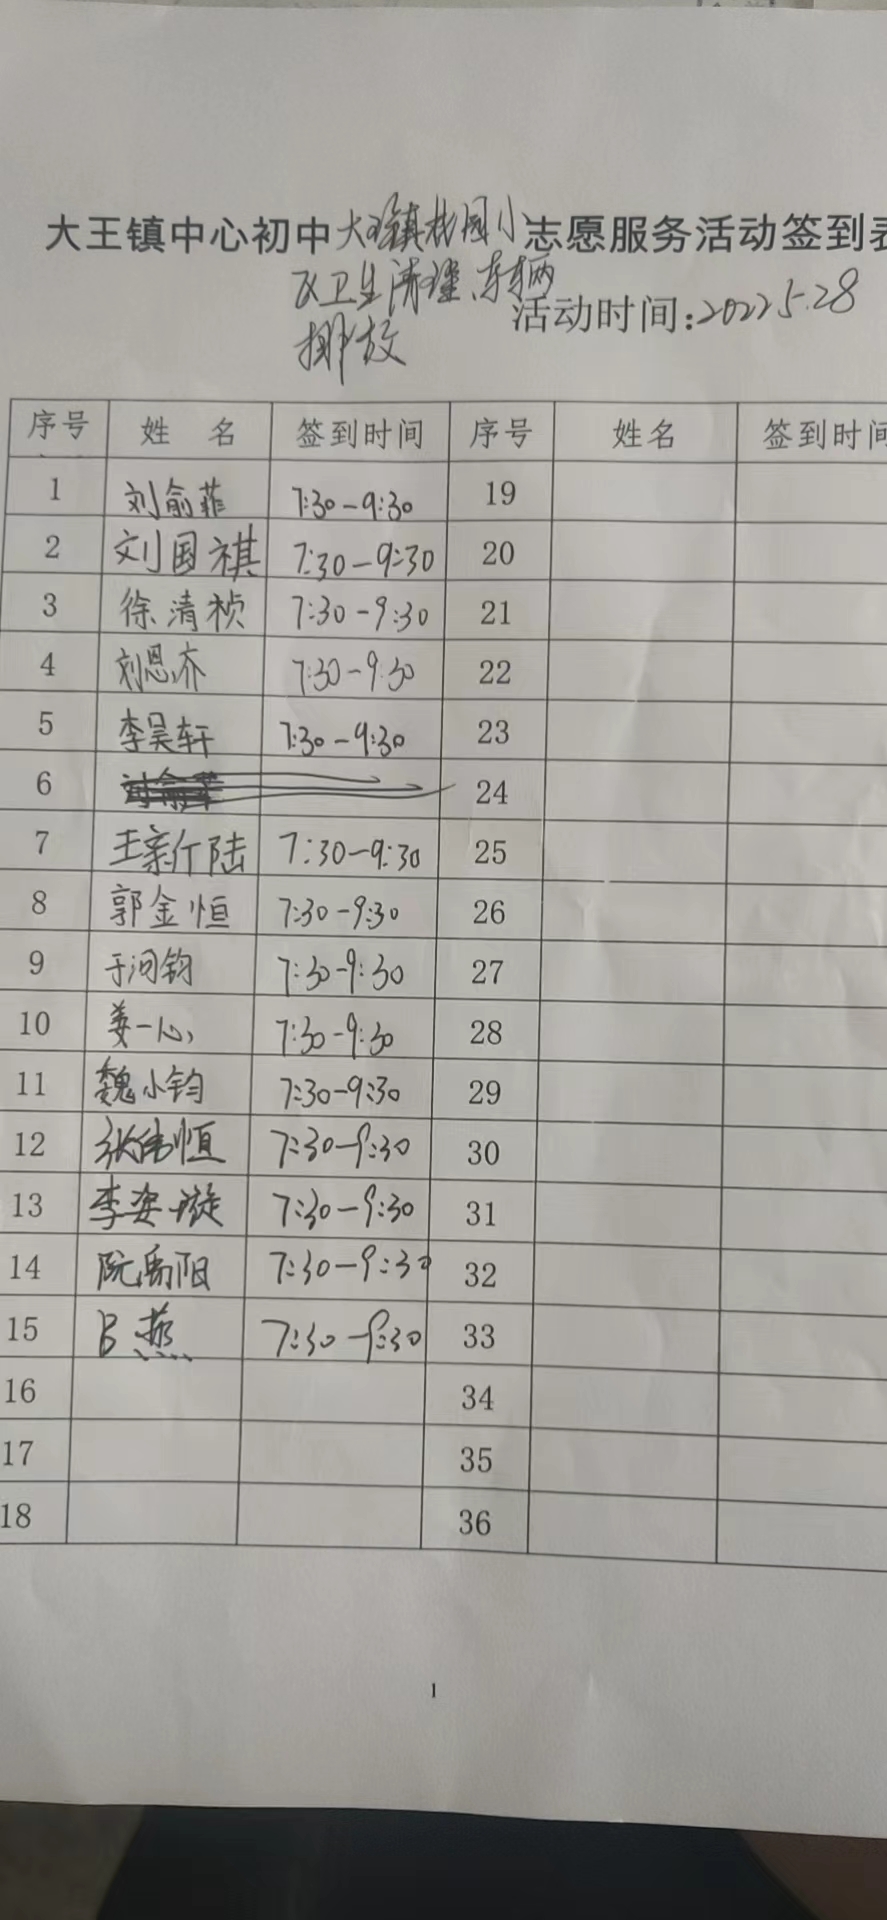 大王镇中心初中大王镇桃园小志愿服务活动签到表
区卫生清理、车辆
排放
活动时间:2022 5.28
序号 姓 名 签到时间 序号 姓名 签到时间
1 刘俞菲 7:30-9:30 19
2 刘国祺 7:30-9:30 20
3 徐清桢 7:30-9:30 21
4 刘恩齐 7:30-9:30 22
5 李昊轩 7:30-9:30 23
6 24
7 王新陆 7:30-9:30 25
8 郭金恒 7:30-9:30 26
9 于润钧 7:30-9:30 27
10 姜一心 7:30-9:30 28
11 魏小钧 7:30-9:30 29
12 张伟恒 7:30-9:30 30
13 李姿璇 7:30-9:30 31
14 阮禹阳 7:30-9:30 32
15 燕 7:30-9:30 33
16 34
17 35
18 36
1